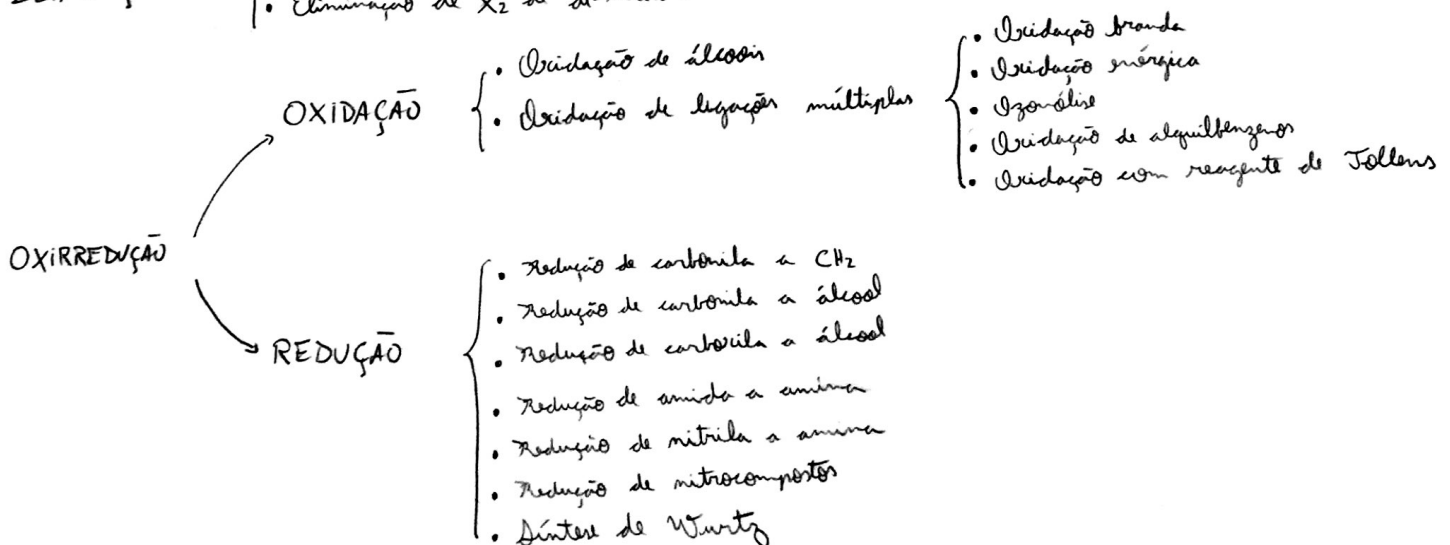 • Eliminação de X₂ de
OXIDAÇÃO
• Oxidação de álcoois
• Oxidação de ligações múltiplas
• Oxidação branda
• Oxidação enérgica
• Ozonólise
• Oxidação de alquilbenzenos
• Oxidação com reagente de Tollens
OXIRREDUÇÃO
REDUÇÃO
• Redução de carbonila a CH₂
• Redução de carbonila a álcool
• Redução de carboxila a álcool
• Redução de amida a amina
• Redução de nitrila a amina
• Redução de nitrocompostos
• Síntese de Wurtz